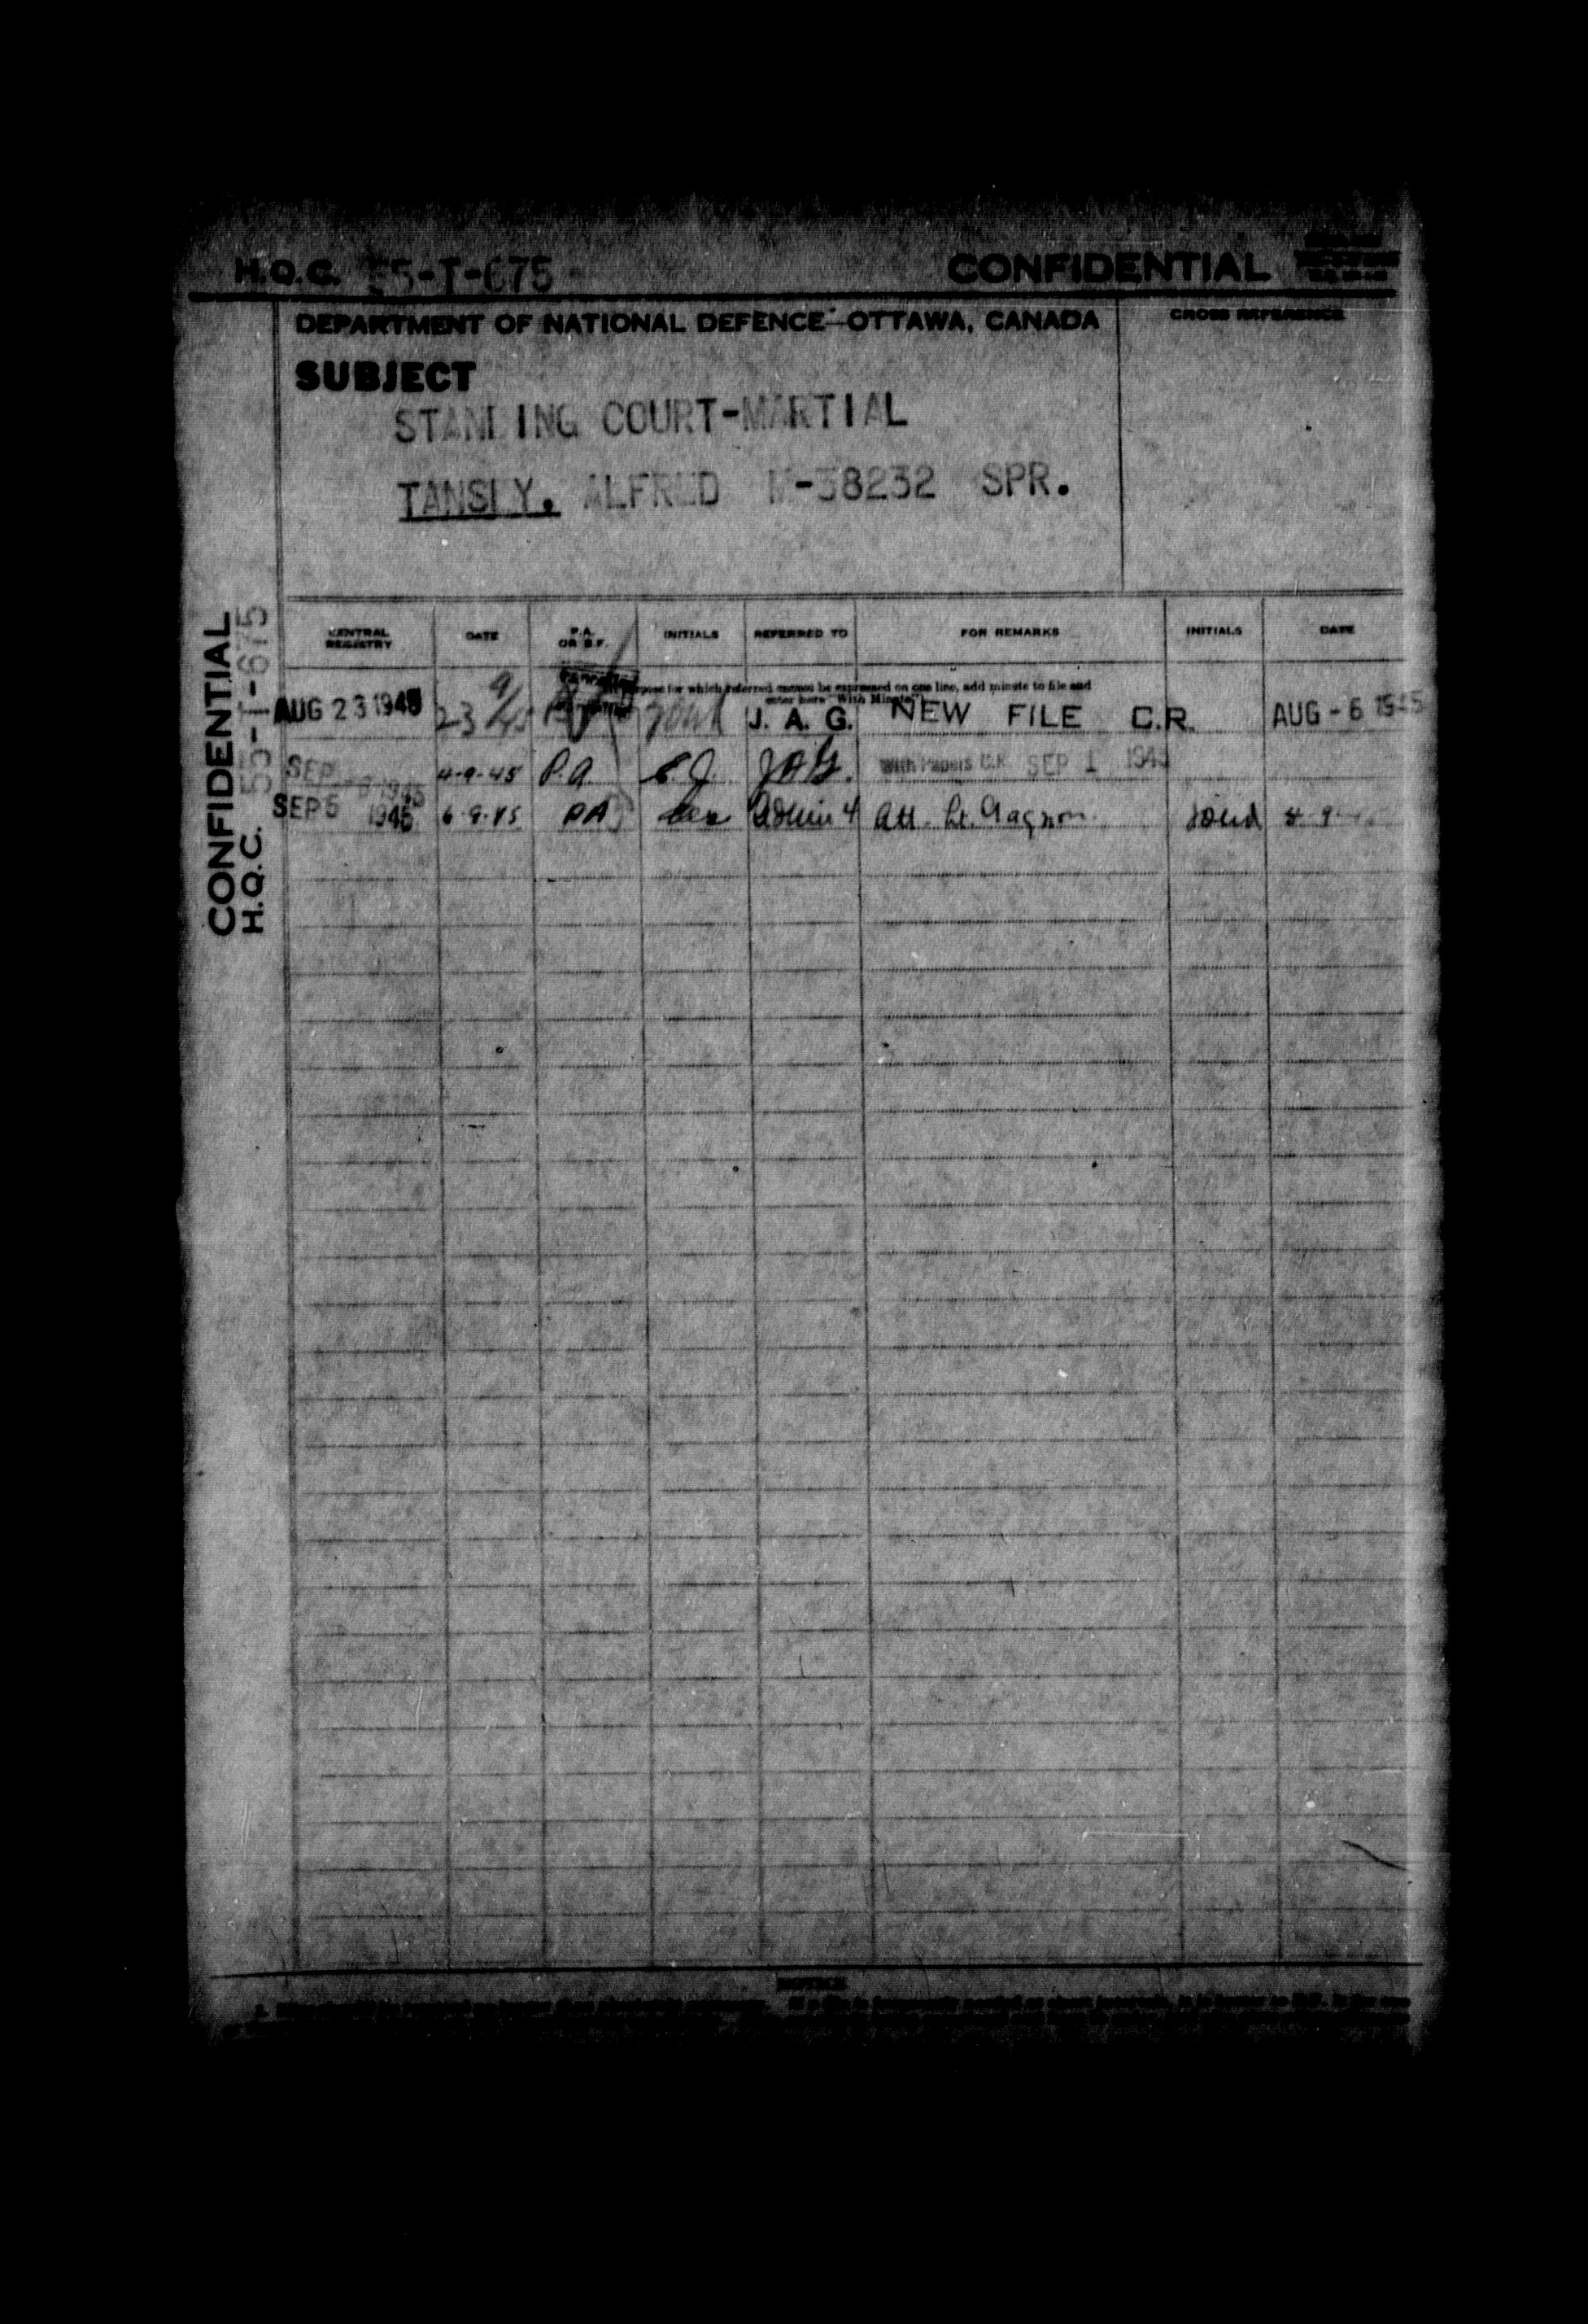 H.Q.C. 55-T-675 CONFIDENTIAL
DEPARTMENT OF NATIONAL DEFENCE—OTTAWA, CANADA
CROSS REFERENCE
SUBJECT
STANDING COURT-MARTIAL
TANSLY, ALFRED M-38232 SPR.
CONFIDENTIAL
H.Q.C. 55-T-675
CENTRAL REGISTRY DATE P.A. OR B.F. INITIALS REFERRED TO FOR REMARKS INITIALS DATE
purpose for which referred cannot be expressed on one line, add minute to file and
enter here "With Minute"
AUG 23 1945 23 J. A. G. NEW FILE C.R. AUG - 6 1945
SEP 1945 4-9-45 P.A. JAG. With Papers C.R. SEP 1 1945
SEP 5 1945 6-9-45 PA Admin 4 Att. Lt. Gagnon
NOTICE